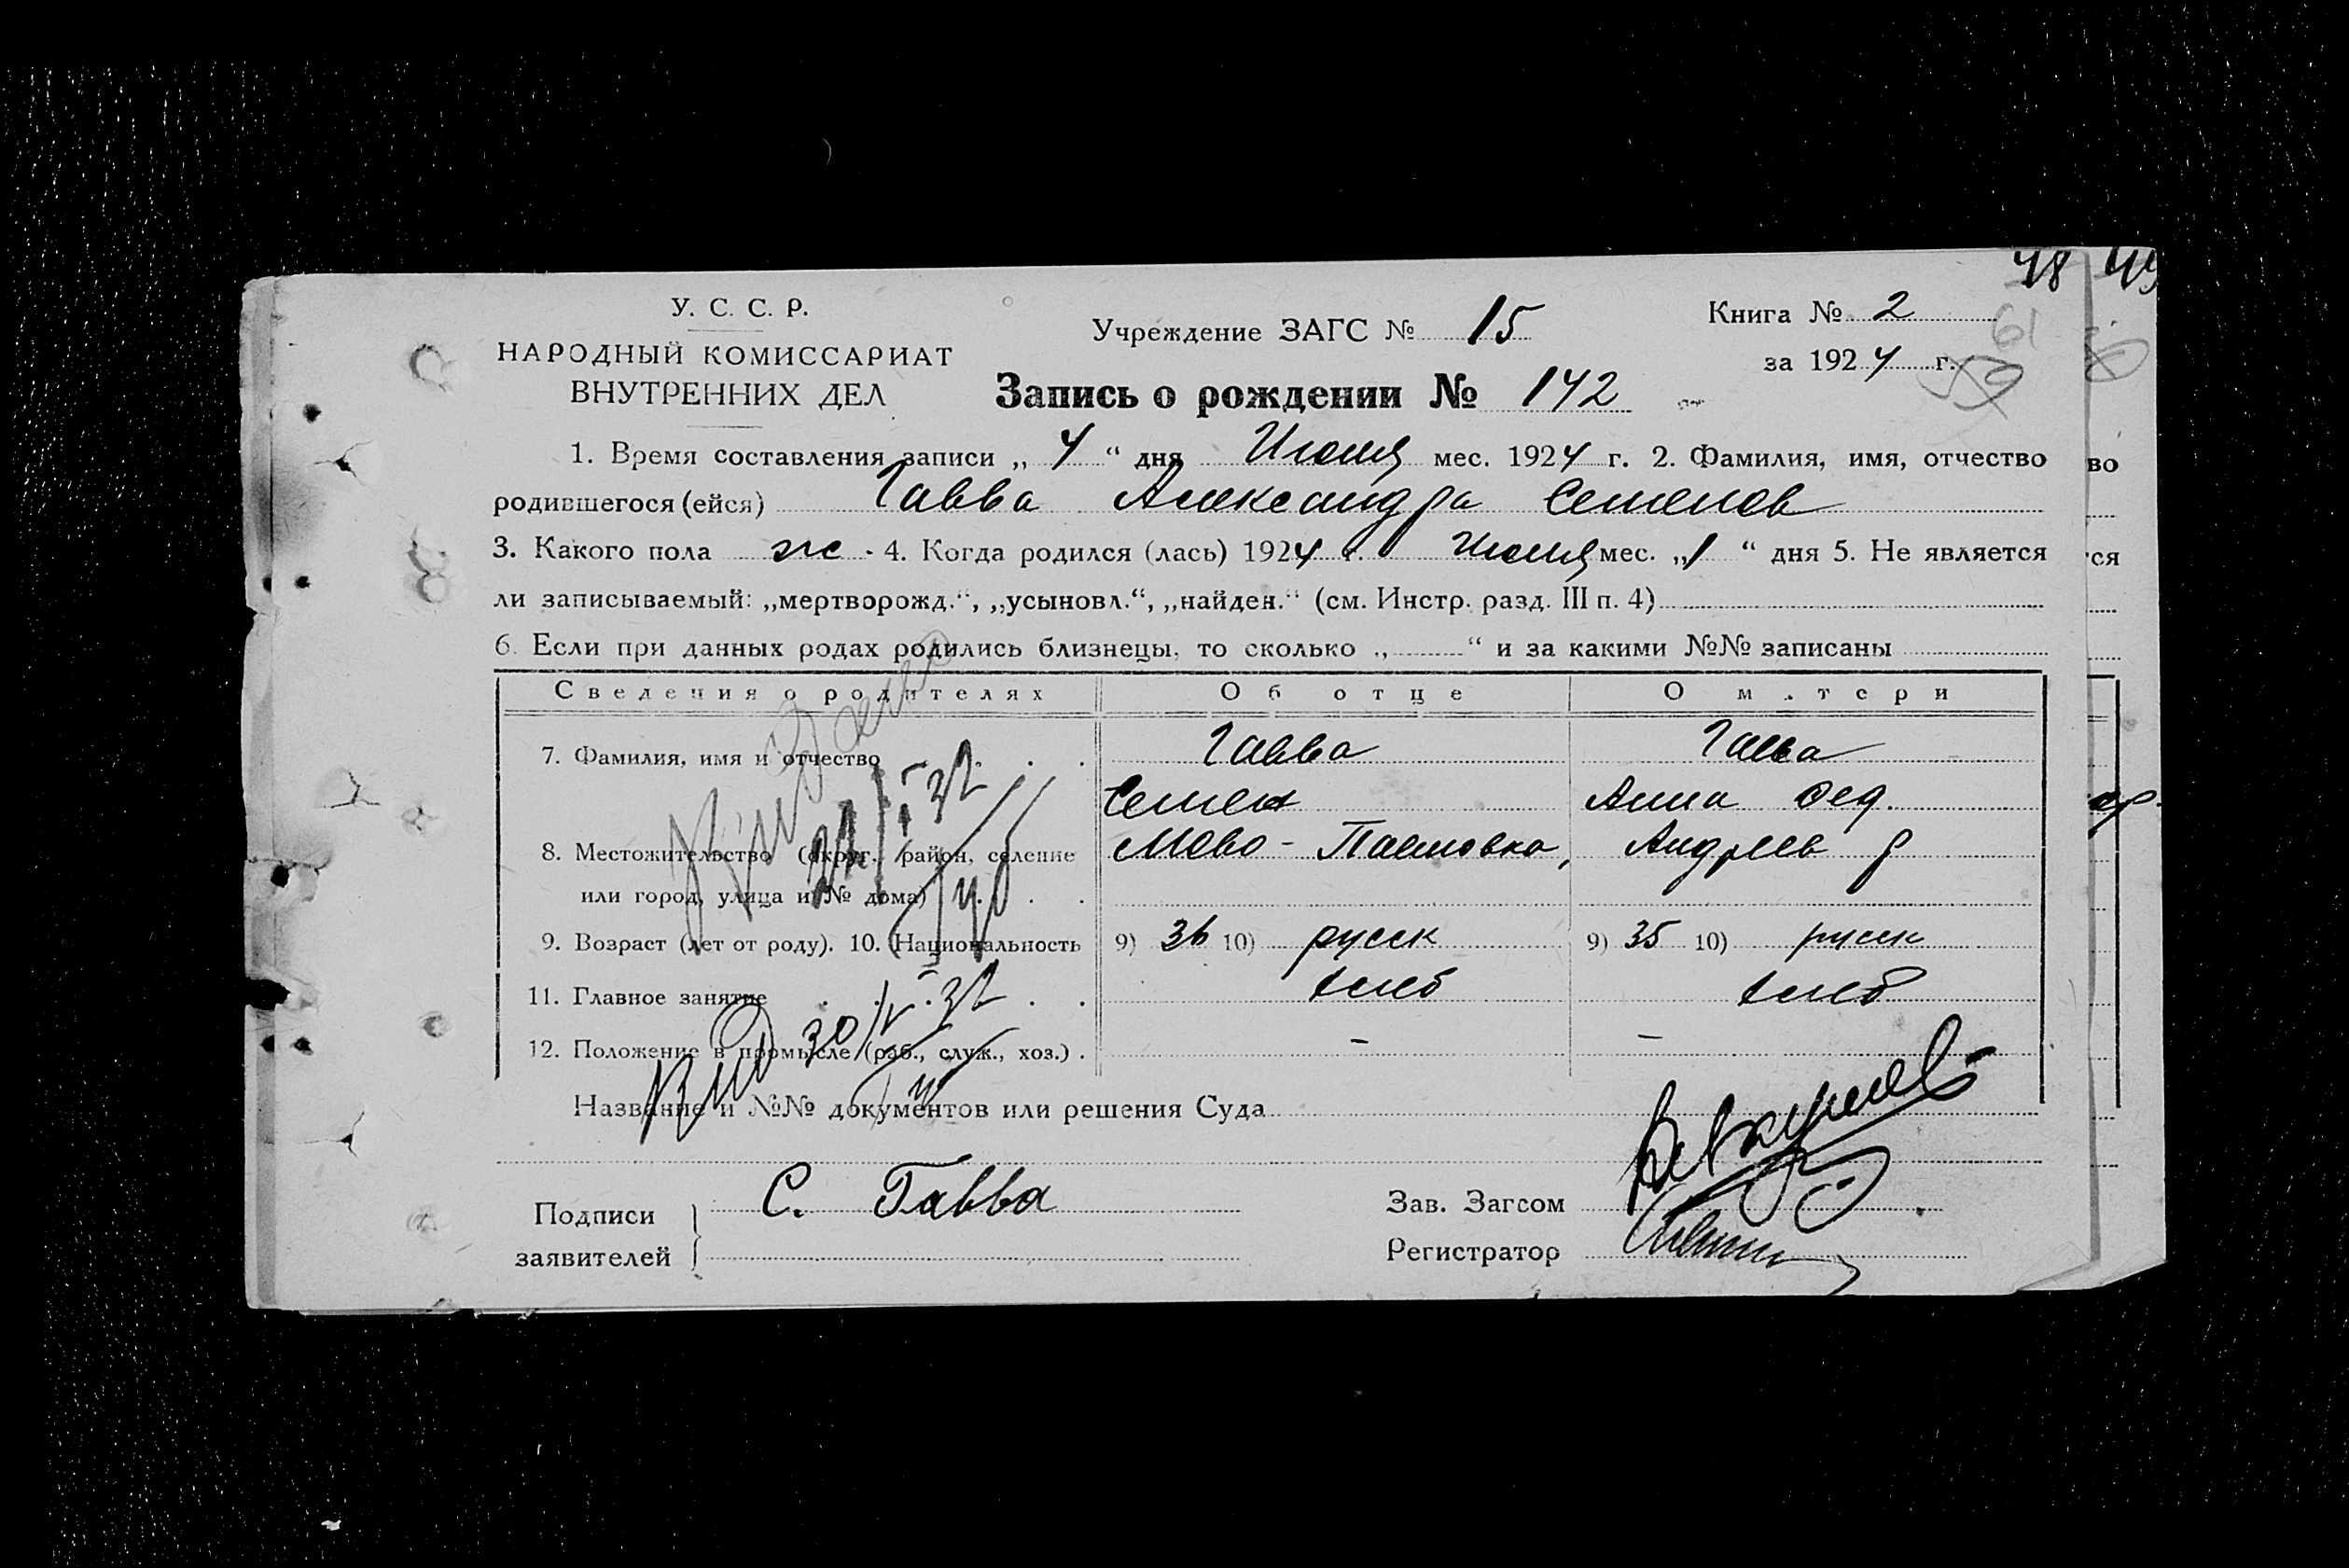 48 49
У. С. С. Р.
НАРОДНЫЙ КОМИССАРИАТ
ВНУТРЕННИХ ДЕЛ
Учреждение ЗАГС № 15
Книга № 2
за 1924 г.
61
59
Запись о рождении № 142
1. Время составления записи „ 4 “ дня Июля мес. 1924 г. 2. Фамилия, имя, отчество
родившегося (ейся) Гавва Александра Семенов
3. Какого пола ж · 4. Когда родился (лась) 1924 г. Июля мес. „1 “ дня 5. Не является
ли записываемый: „мертворожд.“, „усыновл.“, „найден.“ (см. Инстр. разд. III п. 4)
6. Если при данных родах родились близнецы, то сколько „ “ и за какими №№ записаны
Сведения о родителях Об отце О м.тери
7. Фамилия, имя и отчество Гавва Гавва
Семен Анна Фед.
8. Местожительство (округ., район, селение Ново-Павловка, Андреев р
или город, улица и № дома)
9. Возраст (лет от роду). 10. Национальность 9) 36 10) русск 9) 35 10) русск
11. Главное занятие хлеб хлеб
12. Положение в промысле (раб., служ., хоз.) . – –
30/V-32
Название и №№ документов или решения Суда
Подписи
заявителей
С. Гавва
Зав. Загсом
Регистратор
во
ся